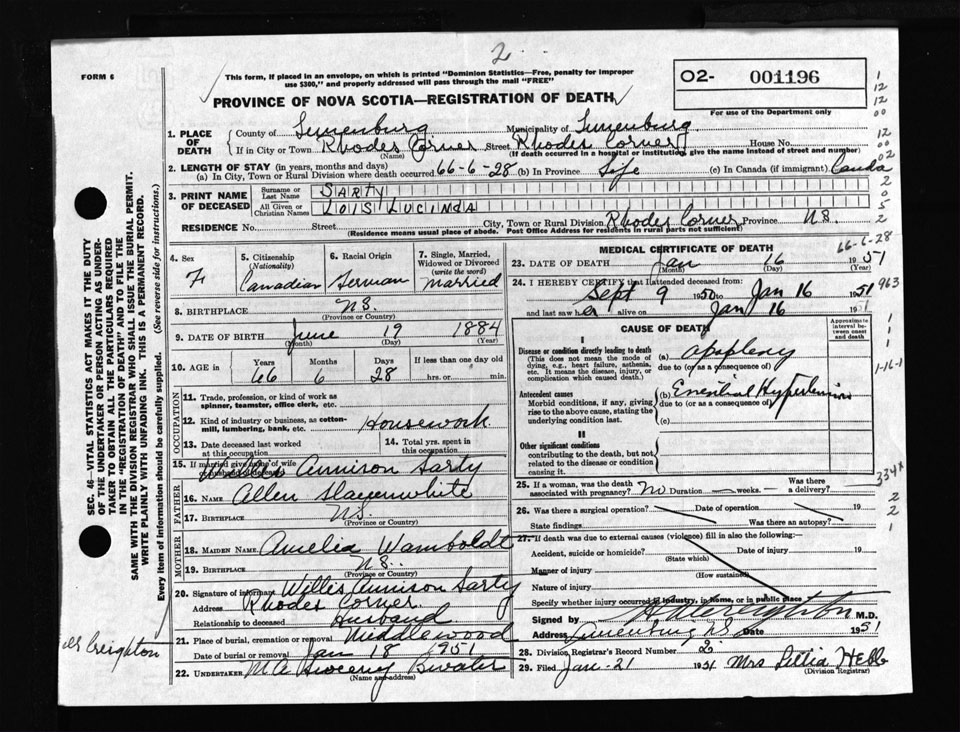 2.
FORM 6
This form, if placed in an envelope, on which is printed "Dominion Statistics—Free, penalty for improper
use $300," and properly addressed will pass through the mail "FREE"
O2- 001196
PROVINCE OF NOVA SCOTIA—REGISTRATION OF DEATH
For use of the Department only
1. PLACE OF DEATH
County of Lunenburg Municipality of Lunenburg
If in City or Town Rhodes Corner Street Rhodes Corner House No.
(Name) (If death occurred in a hospital or institution, give the name instead of street and number)
2. LENGTH OF STAY (in years, months and days)
(a) In City, Town or Rural Division where death occurred 66-6-28 (b) In Province Life (c) In Canada (if immigrant) Canda
3. PRINT NAME OF DECEASED
Surname or Last Name SARTY
All Given or Christian Names LOIS LUCINDA
RESIDENCE No. Street City, Town or Rural Division Rhodes Corner Province N.S.
(Residence means usual place of abode. Post Office Address for residents in rural parts not sufficient)
4. Sex F
5. Citizenship (Nationality) Canadian
6. Racial Origin German
7. Single, Married, Widowed or Divorced (write the word) married
8. BIRTHPLACE N.S.
(Province or Country)
9. DATE OF BIRTH June 19 1884
(Month) (Day) (Year)
10. AGE in Years Months Days If less than one day old
66 6 28 hrs. or min.
OCCUPATION
11. Trade, profession, or kind of work as spinner, teamster, office clerk, etc.
12. Kind of industry or business, as cotton-mill, lumbering, bank, etc. Housework.
13. Date deceased last worked at this occupation
14. Total yrs. spent in this occupation
15. If married give name of wife or husband of deceased Willis Annison Sarty
FATHER
16. NAME Allen Slauenwhite
17. BIRTHPLACE N.S.
(Province or Country)
MOTHER
18. MAIDEN NAME Amelia Wamboldt
19. BIRTHPLACE N.S.
(Province or Country)
20. Signature of informant Willis Annison Sarty
Address Rhodes Corner
Relationship to deceased Husband
21. Place of burial, cremation or removal Middlewood
Date of burial or removal Jan 18 1951
22. UNDERTAKER
(Name and address)
MEDICAL CERTIFICATE OF DEATH
66-6-28
23. DATE OF DEATH Jan 16 1951
(Month) (Day) (Year)
24. I HEREBY CERTIFY that I attended deceased from:
Sept 9 1950 to Jan 16 1951
and last saw her alive on Jan 16 1951
CAUSE OF DEATH
Approximate interval between onset and death
I
Disease or condition directly leading to death
(This does not mean the mode of dying, e.g., heart failure, asthenia, etc. It means the disease, injury, or complication which caused death.)
(a) Apoplexy
due to (or as a consequence of)
Antecedent causes
Morbid conditions, if any, giving rise to the above cause, stating the underlying condition last.
(b) Essential Hypertension
due to (or as a consequence of)
(c)
II
Other significant conditions
contributing to the death, but not related to the disease or condition causing it.
25. If a woman, was the death associated with pregnancy? No Duration — weeks. — Was there a delivery? —
26. Was there a surgical operation? Date of operation 19
State findings Was there an autopsy?
27. If death was due to external causes (violence) fill in also the following:—
Accident, suicide or homicide? Date of injury 19
(State which)
Manner of injury
(How sustained)
Nature of injury
Specify whether injury occurred in industry, in home, or in public place
Signed by Creighton M.D.
Address Lunenburg N.S. Date 1951
28. Division Registrar's Record Number 2.
29. Filed Jan-21 1951 Mrs Lillia Hebb
(Division Registrar)
SEC. 46—VITAL STATISTICS ACT MAKES IT THE DUTY
OF THE UNDERTAKER OR PERSON ACTING AS UNDER-
TAKER TO OBTAIN ALL THE PARTICULARS REQUIRED
IN THE "REGISTRATION OF DEATH" AND TO FILE THE
SAME WITH THE DIVISION REGISTRAR WHO SHALL ISSUE THE BURIAL PERMIT.
WRITE PLAINLY WITH UNFADING INK. THIS IS A PERMANENT RECORD.
Every item of information should be carefully supplied. (See reverse side for instructions.)
Creighton
1
12
12
00
12
00
02
2
0
5
2
963
1
1
1
1-16-1
334x
2
2
1